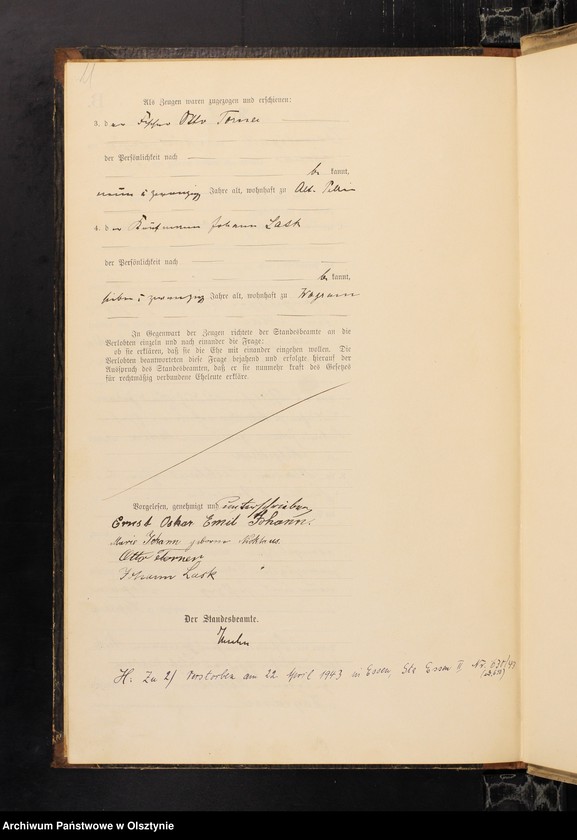 Als Zeugen waren zugezogen und erschienen:
3. der Otto Torner
der Persönlichkeit nach
be kannt,
neun u zwanzig Jahre alt, wohnhaft zu Alt.
4. der Kaufmann Johann Lask
der Persönlichkeit nach
be kannt,
sieben u zwanzig Jahre alt, wohnhaft zu
In Gegenwart der Zeugen richtete der Standesbeamte an die
Verlobten einzeln und nach einander die Frage:
ob sie erklären, daß sie die Ehe mit einander eingehen wollen. Die
Verlobten beantworteten diese Frage bejahend und erfolgte hierauf der
Ausspruch des Standesbeamten, daß er sie nunmehr kraft des Gesetzes
für rechtmäßig verbundene Eheleute erkläre.
Vorgelesen, genehmigt und unterschrieben
Ernst Oskar Emil Johann.
Marie Johann geborene
Otto Torner
Johann Lask
Der Standesbeamte.
H. Zu 2) Verstorben am 22. April 1943 in Essen, Sta Essen II, Nr.
Archiwum Państwowe w Olsztynie